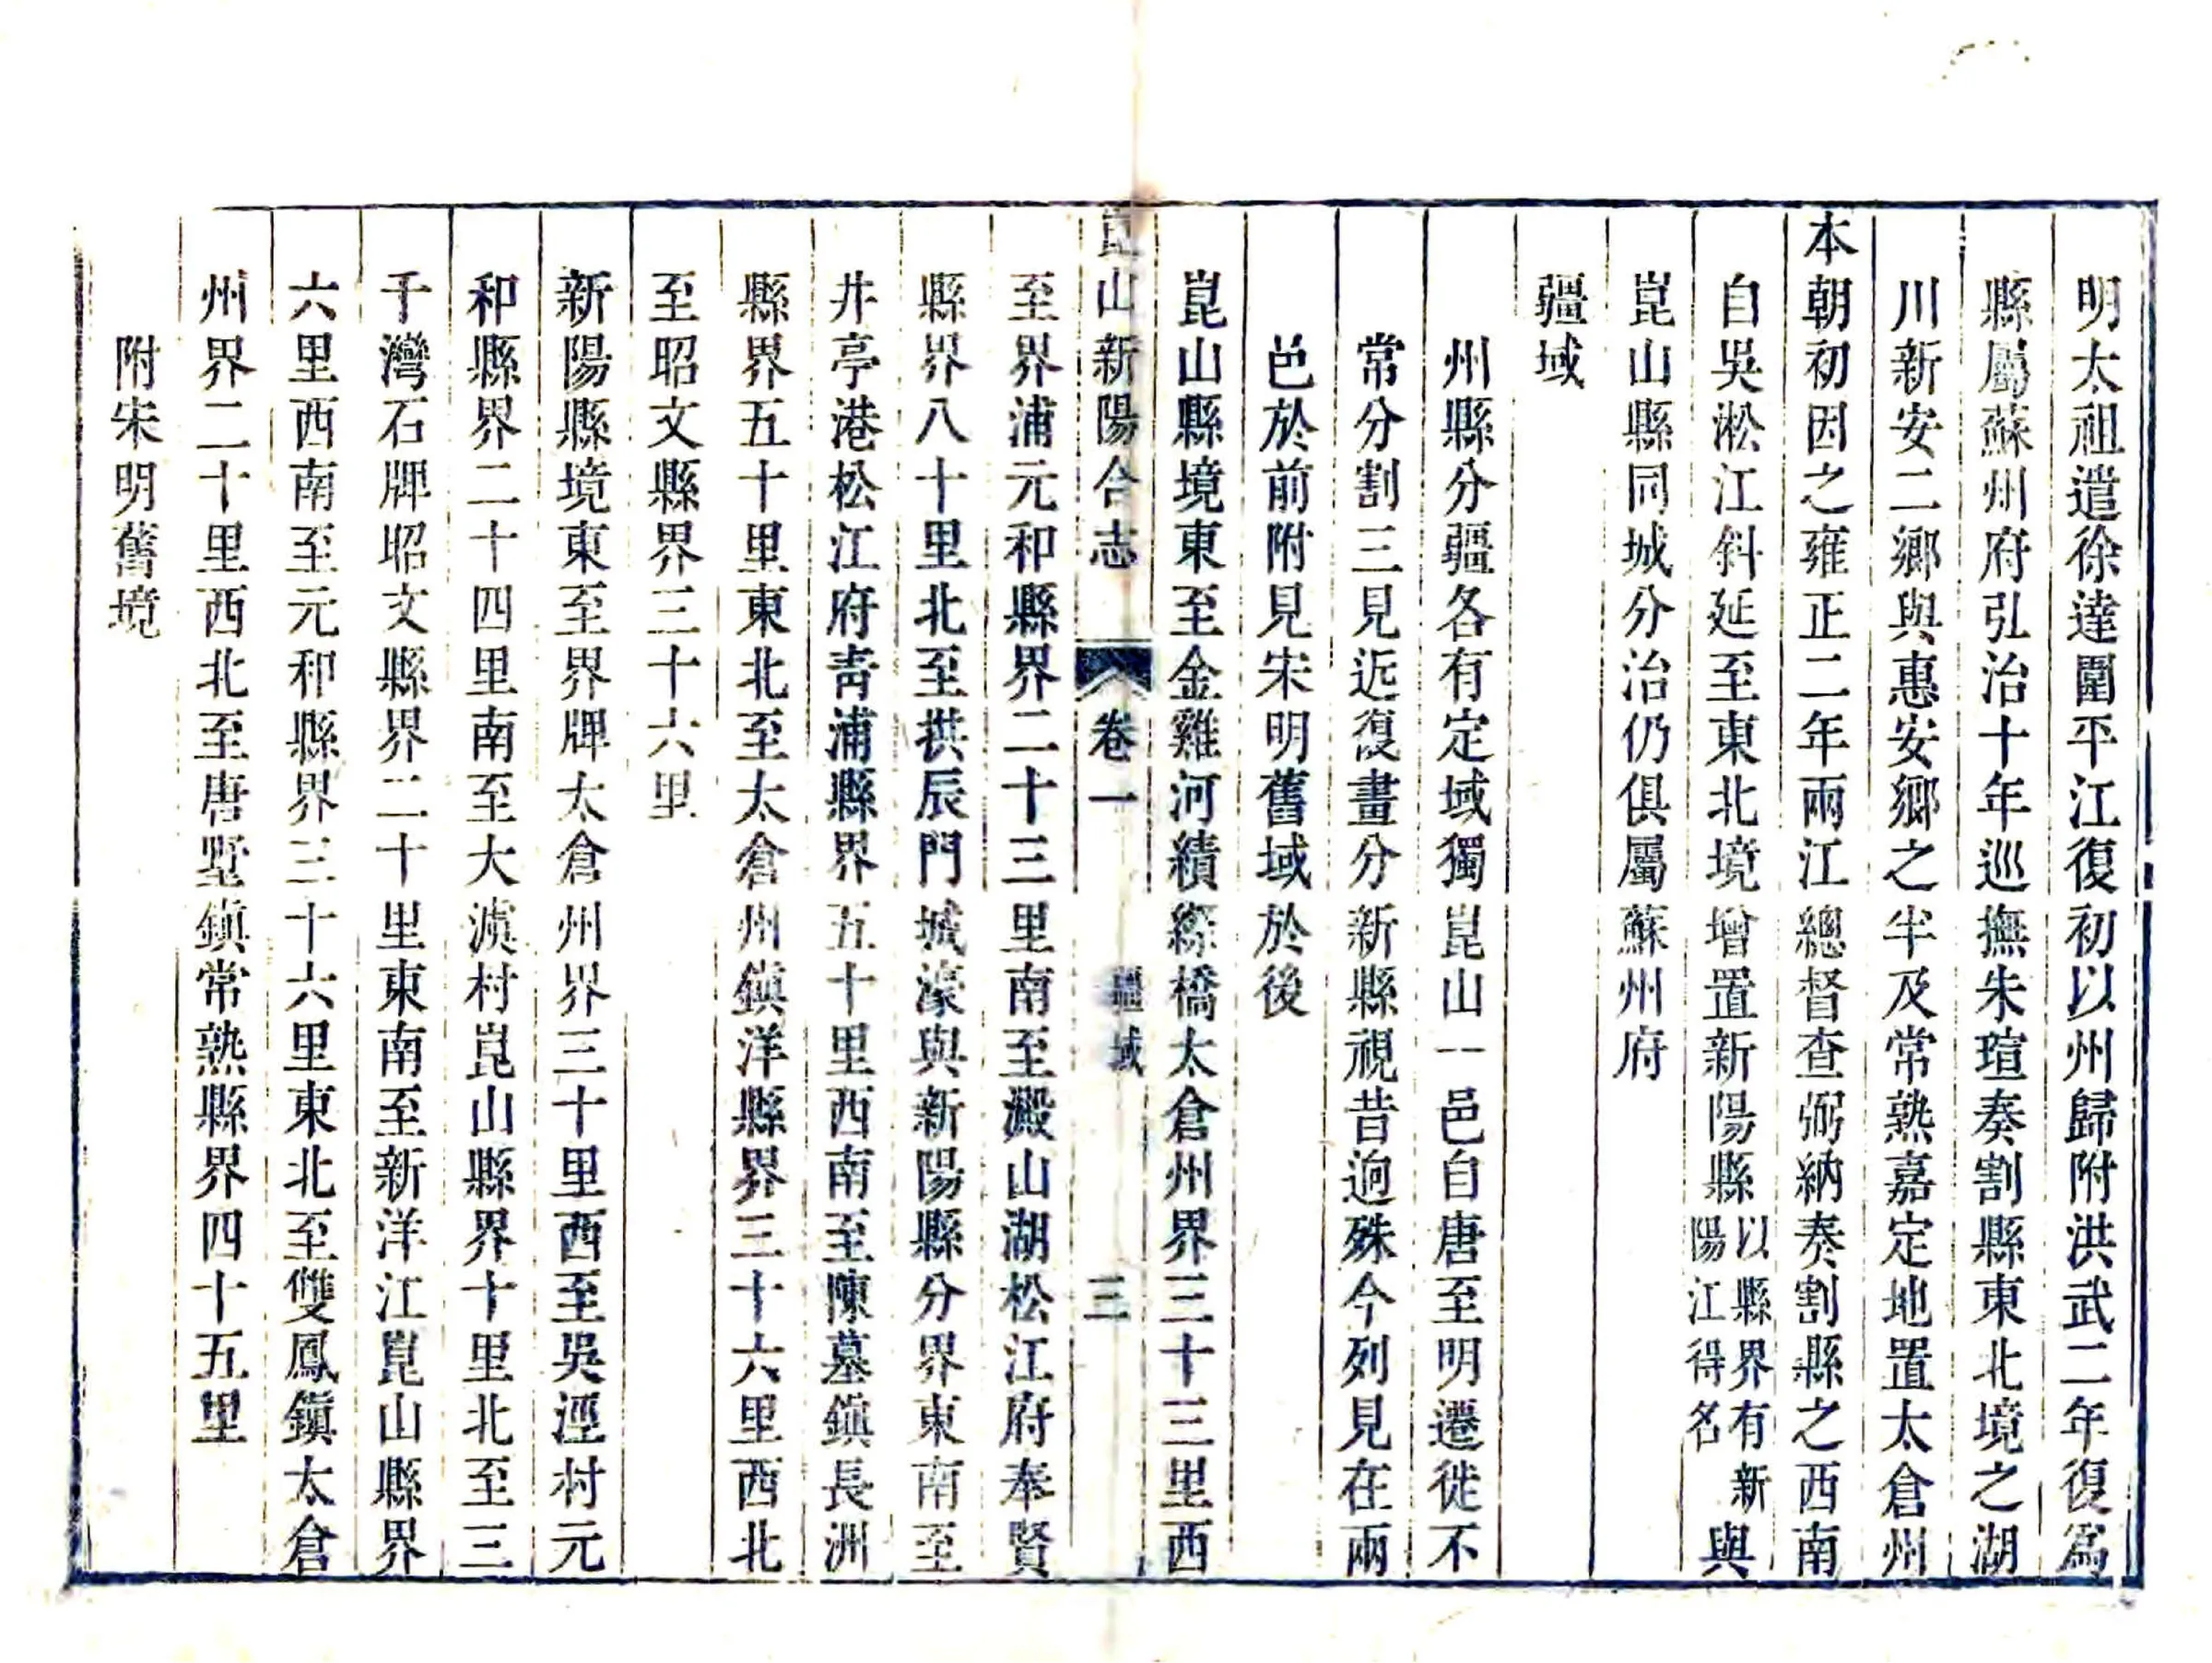 明太祖遣徐達圍平江復初以州歸附洪武二年復爲
縣屬蘇州府弘治十年巡撫朱瑄奏割縣東北境之湖
川新安二鄉與惠安鄉之半及常熟嘉定地置太倉州
本朝初因之雍正二年兩江總督查弼納奏割縣之西南
自吳淞江斜延至東北境增置新陽縣以縣界有新陽江得名與
崑山縣同城分治仍俱屬蘇州府
疆域
州縣分疆各有定域獨崑山一邑自唐至明遷徙不
常分割三見近復畫分新縣視昔逈殊今列見在兩
邑於前附見宋明舊域於後
崑山縣境東至金雞河績綵橋太倉州界三十三里西
崑山新陽合志 卷一 疆域 三
至界浦元和縣界二十三里南至澱山湖松江府奉賢
縣界八十里北至拱辰門城濠與新陽縣分界東南至
井亭港松江府靑浦縣界五十里西南至陳墓鎮長洲
縣界五十里東北至太倉州鎮洋縣界三十六里西北
至昭文縣界三十六里
新陽縣境東至界牌太倉州界三十里西至吳涇村元
和縣界二十四里南至大澞村崑山縣界十里北至三
千灣石牌昭文縣界二十里東南至新洋江崑山縣界
六里西南至元和縣界三十六里東北至雙鳳鎮太倉
州界二十里西北至唐墅鎮常熟縣界四十五里
附宋明舊境